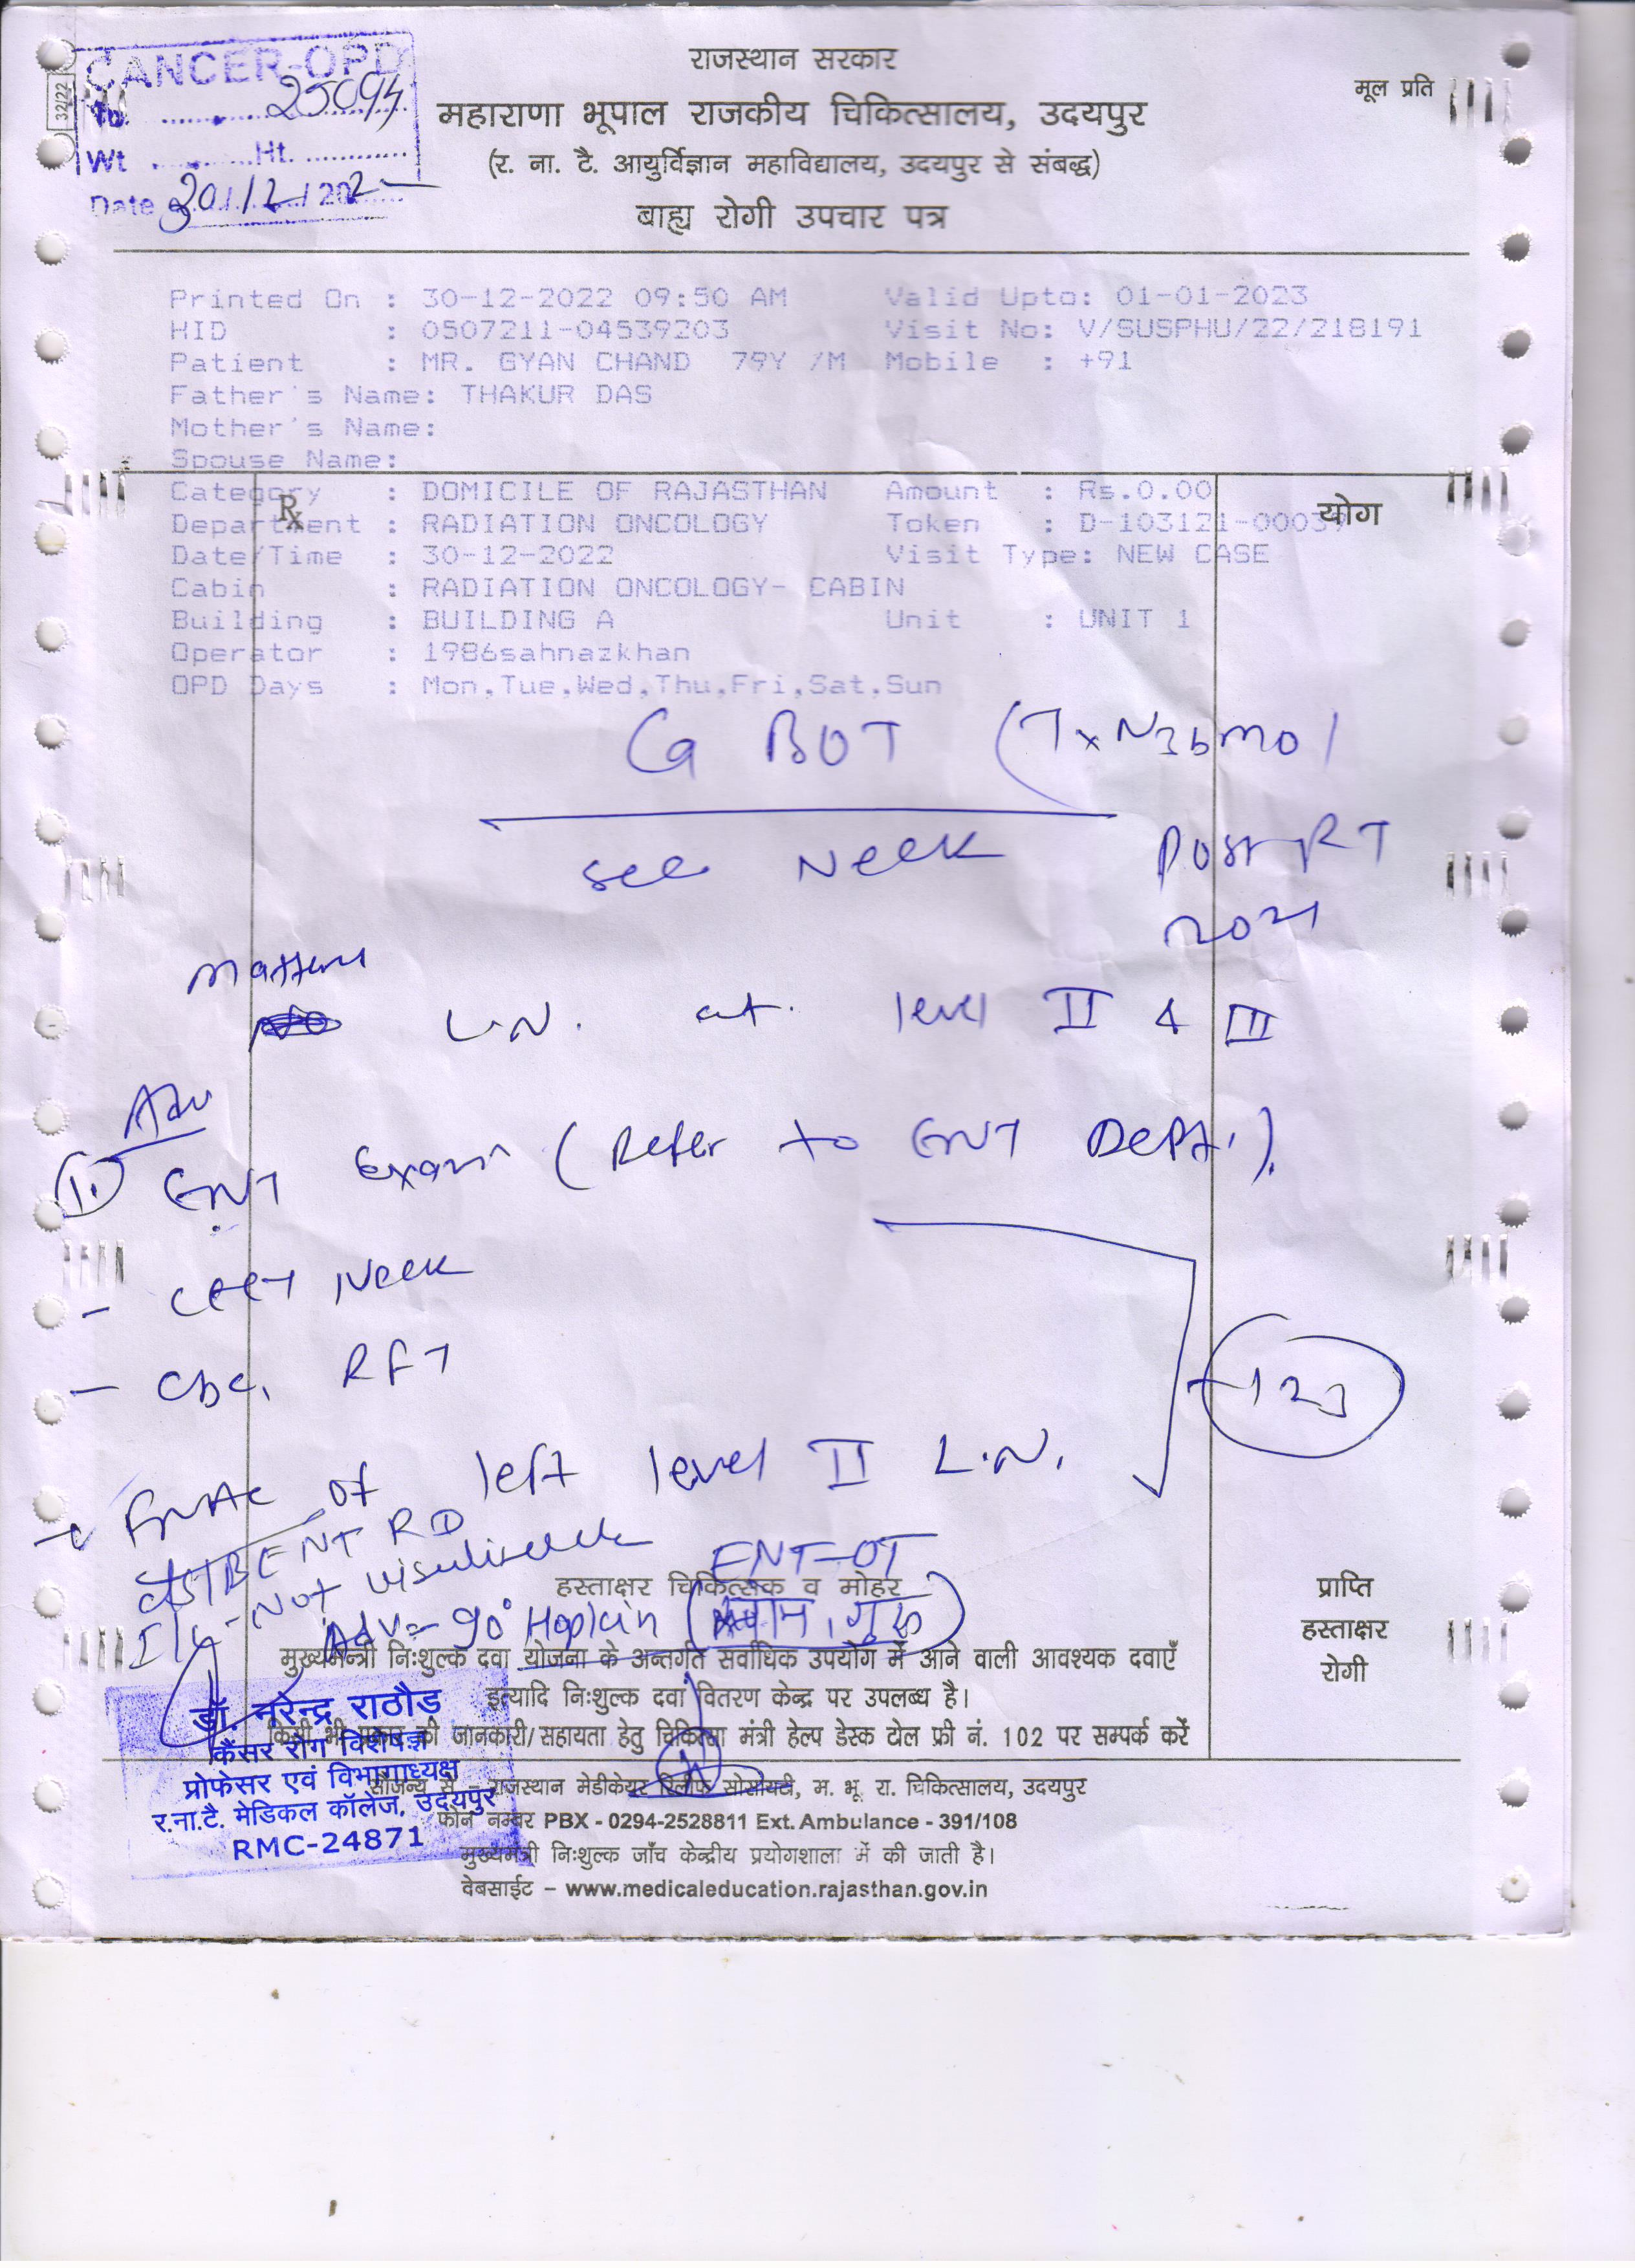 CANCER-OPD
32/22
No. 25094
Wt ............Ht. ............
Date 30/12/202
राजस्थान सरकार
मूल प्रति
महाराणा भूपाल राजकीय चिकित्सालय, उदयपुर
(र. ना. टै. आयुर्विज्ञान महाविद्यालय, उदयपुर से संबद्ध)
बाह्य रोगी उपचार पत्र
Printed On : 30-12-2022 09:50 AM Valid Upto: 01-01-2023
HID : 0507211-04539203 Visit No: V/SUSPHU/22/218191
Patient : MR. GYAN CHAND 79Y /M Mobile : +91
Father's Name: THAKUR DAS
Mother's Name:
Spouse Name:
Category : DOMICILE OF RAJASTHAN Amount : Rs.0.00
Rx
योग
Department : RADIATION ONCOLOGY Token : D-103121-00039
Date/Time : 30-12-2022 Visit Type: NEW CASE
Cabin : RADIATION ONCOLOGY- CABIN
Building : BUILDING A Unit : UNIT 1
Operator : 1986sahnazkhan
OPD Days : Mon,Tue,Wed,Thu,Fri,Sat,Sun
Ca BOT (TxN3bM0)
sec Neck Post RT
2021
L.N. at level II & III
Adv
1.) ENT Exam (Refer to ENT Deptt.).
- CECT Neck
- CBC, RFT
123
- FNAC of left level II L.N.
ENT RD
I/L - Not visualiseable
ENT-OT
हस्ताक्षर चिकित्सक व मोहर
Adv:- 90° Hopkin
प्राप्ति
हस्ताक्षर
रोगी
मुख्यमन्त्री निःशुल्क दवा योजना के अन्तर्गत सर्वाधिक उपयोग में आने वाली आवश्यक दवाएँ
इत्यादि निःशुल्क दवा वितरण केन्द्र पर उपलब्ध है।
किसी भी प्रकार की जानकारी/सहायता हेतु चिकित्सा मंत्री हेल्प डेस्क टोल फ्री नं. 102 पर सम्पर्क करें
डॉ. नरेन्द्र राठौड़
कैंसर रोग विशेषज्ञ
प्रोफेसर एवं विभागाध्यक्ष
र.ना.टै. मेडिकल कॉलेज, उदयपुर
RMC-24871
सौजन्य से - राजस्थान मेडीकेयर रिलीफ सोसायटी, म. भू. रा. चिकित्सालय, उदयपुर
फोन नम्बर PBX - 0294-2528811 Ext. Ambulance - 391/108
मुख्यमंत्री निःशुल्क जाँच केन्द्रीय प्रयोगशाला में की जाती है।
वेबसाईट - www.medicaleducation.rajasthan.gov.in